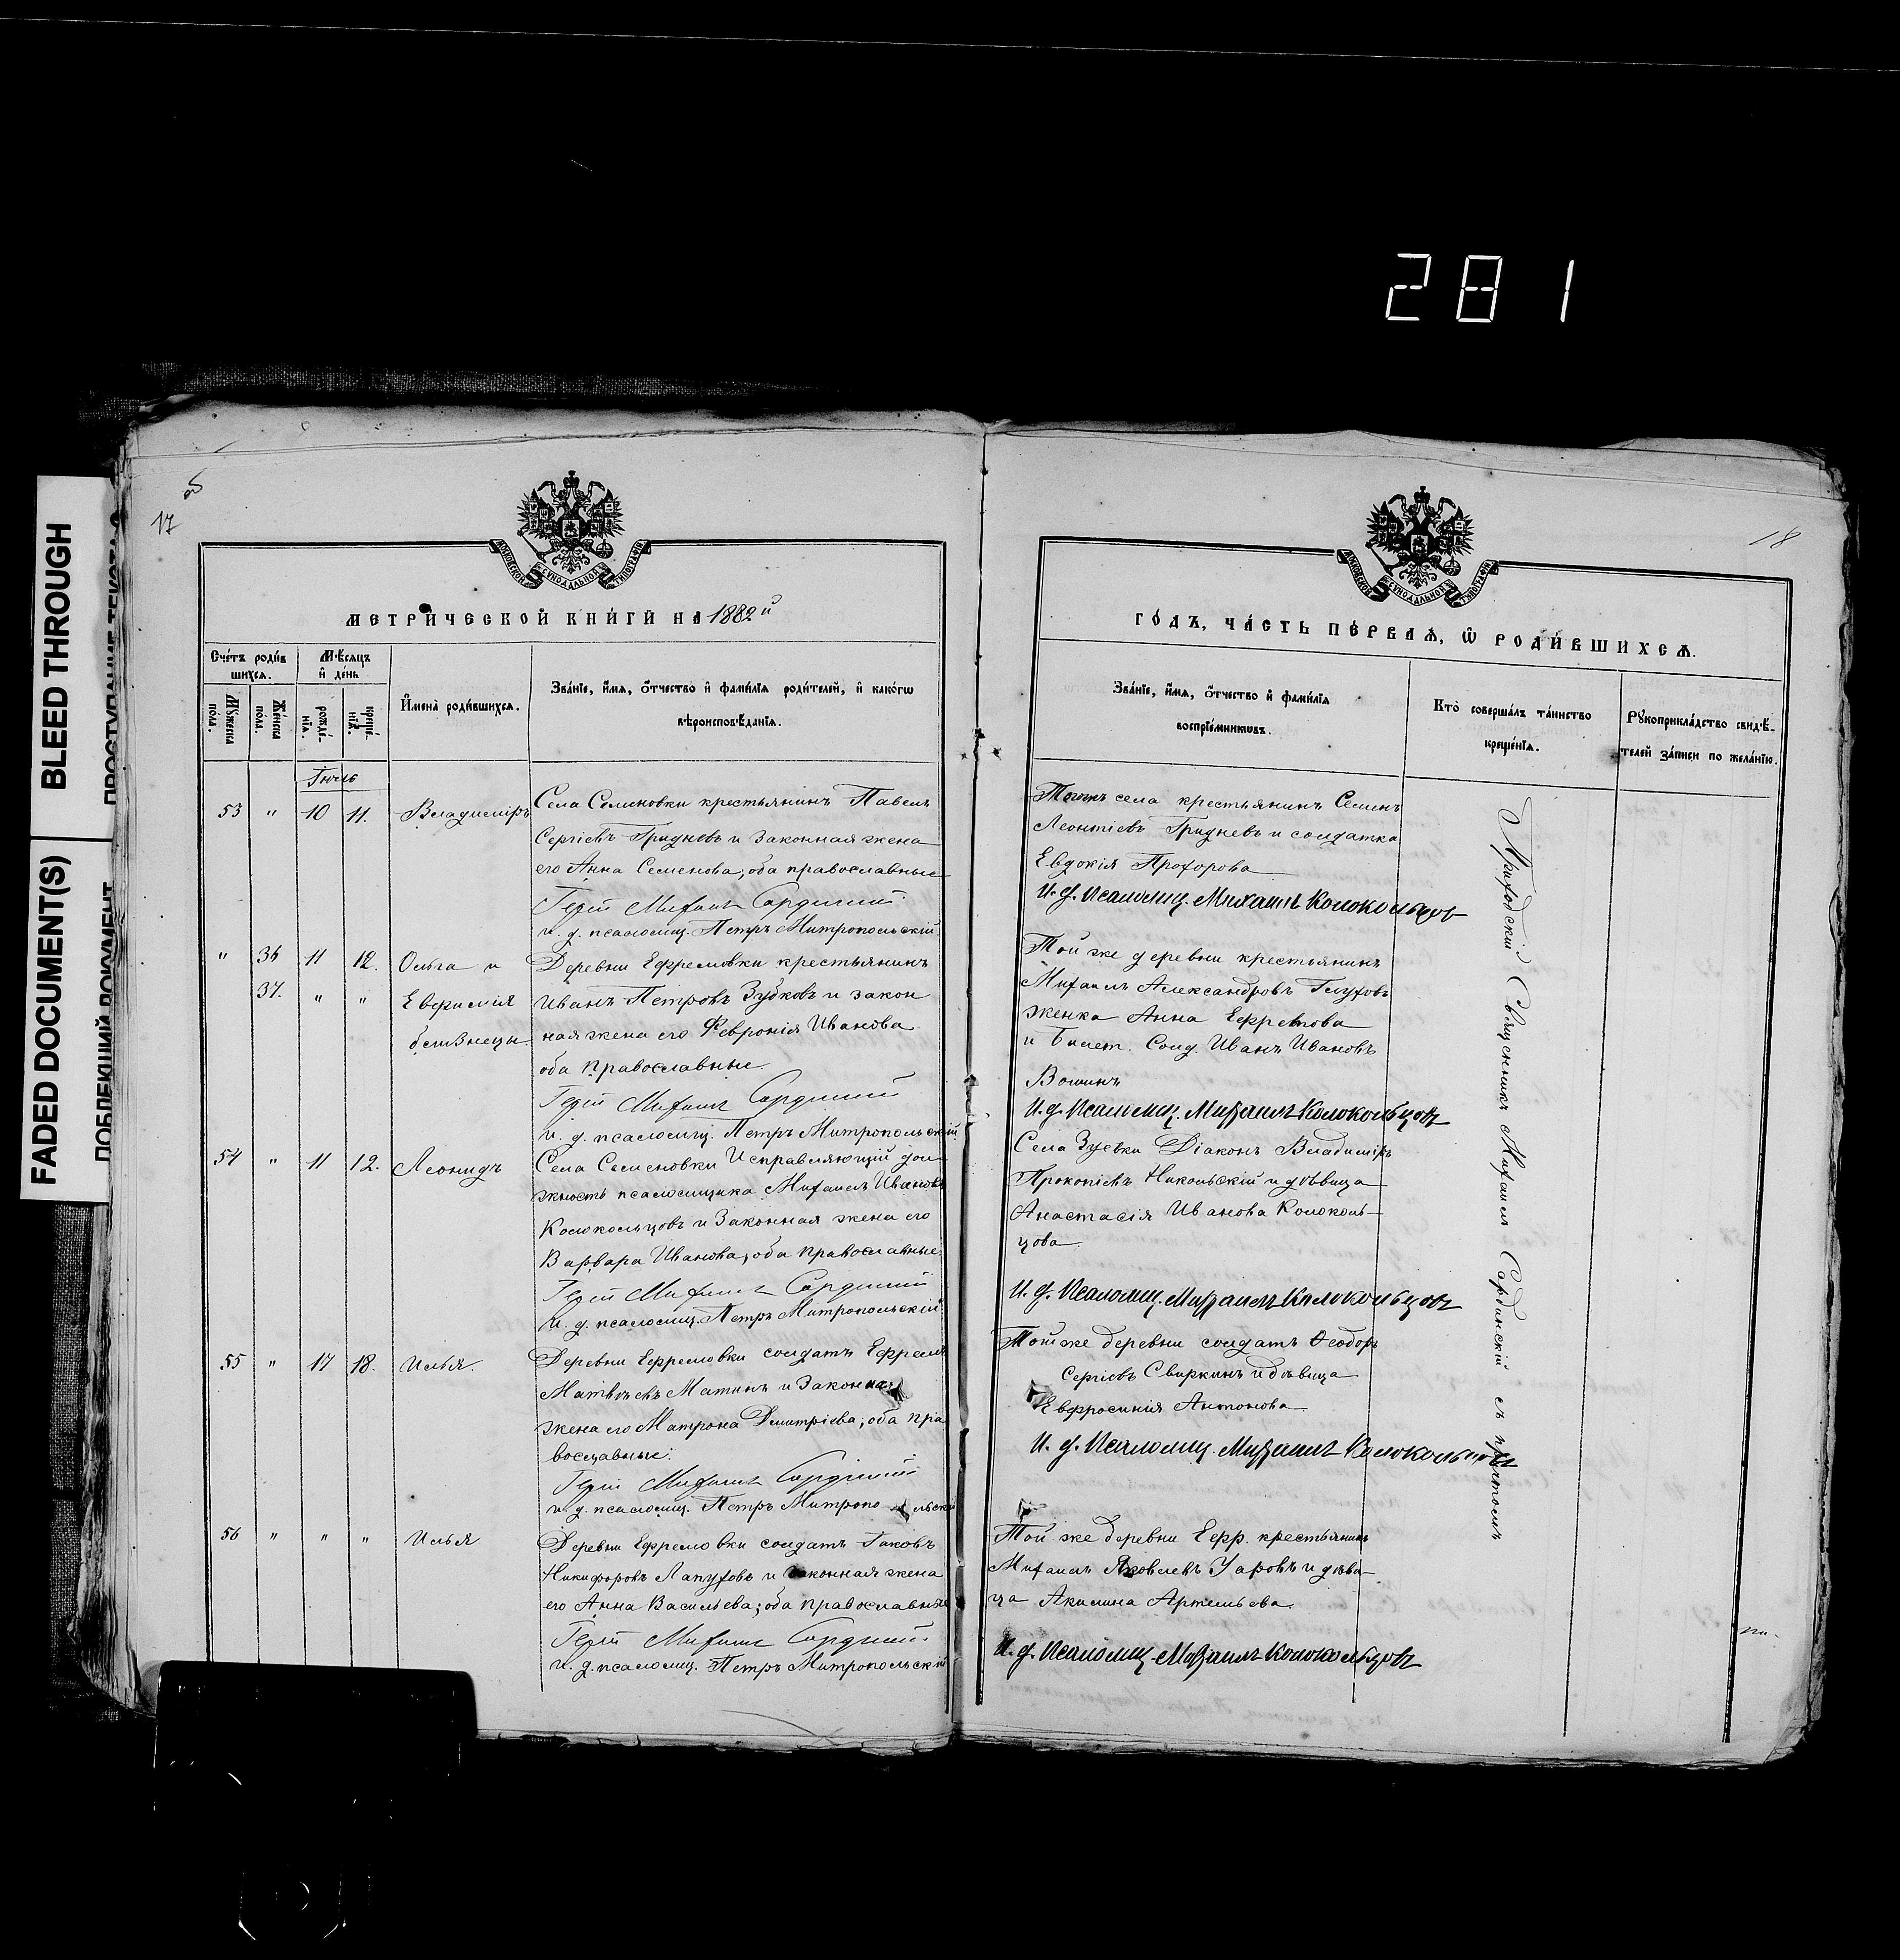 281
BLEED THROUGH
FADED DOCUMENT(S)
17
18
МОСКОВСКОЙ СѴНОДАЛЬНОЙ ТИПОГРАФІИ
МОСКОВСКОЙ СѴНОДАЛЬНОЙ ТИПОГРАФІИ
МЕТРИ́ЧЕСКОЙ КНИ́ГИ НА 1882й
Сче́тъ роди́вшихсѧ.
Мꙋ́жеска по́ла.
Же́нска по́ла.
Мѣ́сѧцъ и҆ де́нь
рожде́нїѧ.
креще́нїѧ.
И҆мена̀ роди́вшихсѧ.
Зва́нїе, и҆́мѧ, ѻ҆́тчество и҆ фами́лїѧ роди́телей, и҆ како́гѡ
вѣроисповѣ́данїѧ.
Іюль
53 " 10 11. Владиміръ
Села Семеновки крестьянинъ Павелъ
Сергіевъ Гридневъ и законная жена
его Анна Семенова; оба православные
Іерей Михаилъ Сардинскій
и. д. псаломщ. Петръ Митропольскій
" 36 11 12. Ольга и
37. " " Евфимія
близнецы.
Деревни Ефремовки крестьянинъ
Иванъ Петровъ Зубковъ и закон
ная жена его Февронія Иванова
оба православные.
Іерей Михаилъ Сардинскій
и. д. псаломщ. Петръ Митропольскій
54 " 11 12. Леонидъ
Села Семеновки Исправляющій дол
жность псаломщика Михаилъ Ивановъ
Колокольцовъ и Законная жена его
Варвара Иванова; оба православные.
Іерей Михаилъ Сардинскій
и. д. псаломщ. Петръ Митропольскій
55 " 17 18. Илья.
Деревни Ефремовки солдатъ Ефремъ
Матвѣевъ Матинъ и Законная
жена его Матрона Димитріева; оба пра
вославные.
Іерей Михаилъ Сардинскій
и. д. псаломщ. Петръ Митропольскій
56 " " " Илья
Деревни Ефремовки солдатъ Іаковъ
Никифоровъ Лапуховъ и законная жена
его Анна Васильева; оба православные
Іерей Михаилъ Сардинскій
и. д. псаломщ. Петръ Митропольскій
ГО́ДЪ, ЧА́СТЬ ПЕ́РВАѦ, Ѡ҆ РОДИ́ВШИХСѦ.
Зва́нїе, и҆́мѧ, ѻ҆́тчество и҆ фами́лїѧ
воспрїе́мникѡвъ.
Кто̀ соверша́лъ та́инство
креще́нїѧ.
Рꙋкоприкла́дство свидѣ́-
телей за́писи по жела́нїю.
Тогожъ села крестьянинъ Семенъ
Леонтіевъ Гридневъ и солдатка
Евдокія Прохорова
И. д. Псаломщ. Михаилъ Колокольцовъ
Той же деревни крестьянинъ
Михаилъ Александровъ Глуховъ
женка Анна Ефремова
и Билет. Солд. Иванъ Ивановъ
И. д. Псаломщ. Михаилъ Колокольцовъ
Села Зуевки Діаконъ Владиміръ
Прокопіевъ Никольскій и дѣвица
Анастасія Иванова Колоколь-
цова
И. д. Псаломщ. Михаилъ Колокольцовъ
Той же деревни солдатъ Ѳеодоръ
Сергіевъ Свиркинъ и дѣвица
Евфросинія Антонова
И. д. Псаломщ. Михаилъ Колокольцовъ
Той же деревни Ефр. крестьянинъ
Михаилъ Яковлевъ Уаровъ и дѣви-
ца Акилина Артемьева.
И. д. Псаломщ. Михаилъ Колокольцовъ
Приходскій Священникъ Михаилъ Сардинскій съ причтомъ